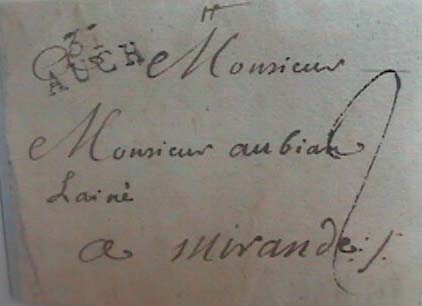 31
AUCH
Monsieur
Monsieur aubian
Lainé
a mirande